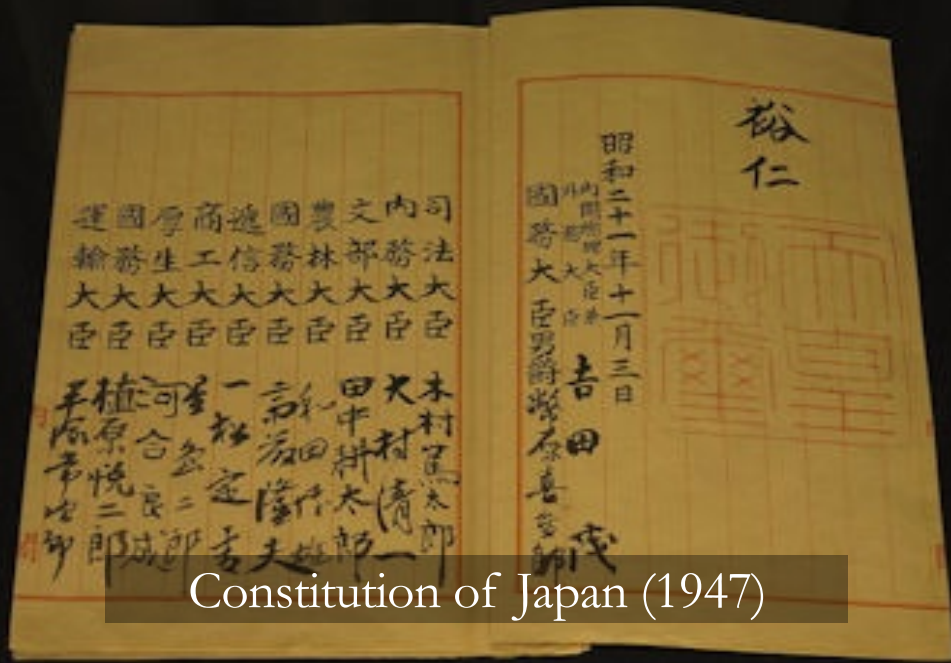 裕仁
天皇
御璽
昭和二十一年十一月三日
内閣總理大臣兼
外務大臣 吉田茂
國務大臣 男爵幣原喜重郎
司法大臣 木村篤太郎
内務大臣 大村清一
文部大臣 田中耕太郎
農林大臣 和田博雄
國務大臣 斎藤隆夫
逓信大臣 一松定吉
商工大臣 星島二郎
厚生大臣 河合良成
國務大臣 植原悦二郎
運輸大臣 平塚常次郎
Constitution of Japan (1947)